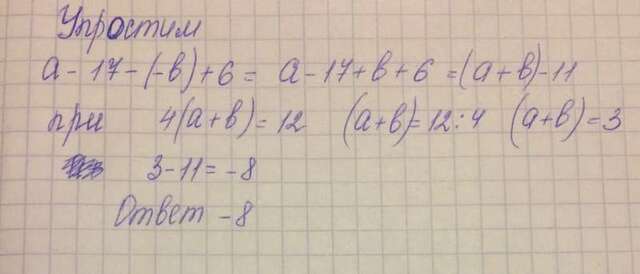 Упростим
а - 17 - (-в) + 6 = а - 17 + в + 6 = (а + в) - 11
при 4(а + в) = 12 (а+в) = 12 : 4 (а + в) = 3
3 - 11 = - 8
Ответ - 8